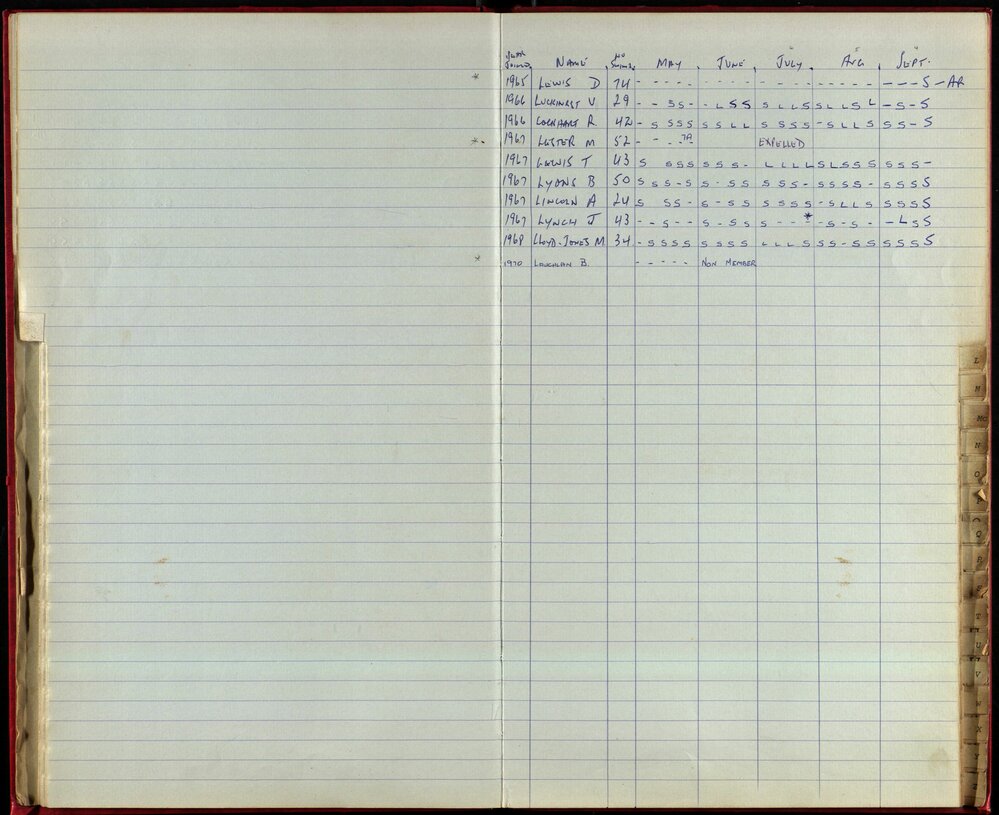 YEAR JOINED NAME NO SWIMS MAY JUNE JULY AUG SEPT.
* 1965 LEWIS D 74 - - - - - - - - - - - - - - - - - - - - S - AR
1966 LUCKHURST V 29 - - S S - - L S S S L L S S L L S L - S - S
1966 LOCKHART R. 42 - S S S S S S L L S S S S - S L L S S S - S
* 1967 LESTER M 52 - - - - EXPELLED
1967 LEWIS T 43 S S S S S S S - L L L L S L S S S S S S -
1967 LYONS B 50 S S S - S S - S S S S S - S S S S - S S S S
1967 LINCOLN A 24 S S S - S - S S S S S S - S L L S S S S S
1967 LYNCH J 43 - - S - - S - S S S - - - * - S - S - - L S S
1968 LLOYD-JONES M 34 - S S S S S S S S L L L S S S - S S S S S S
* 1970 LAUGHLAN B. - - - - - NON MEMBER
L
M
Mc
N
O
P
Q
R
S
T
U
V
W
X
Y